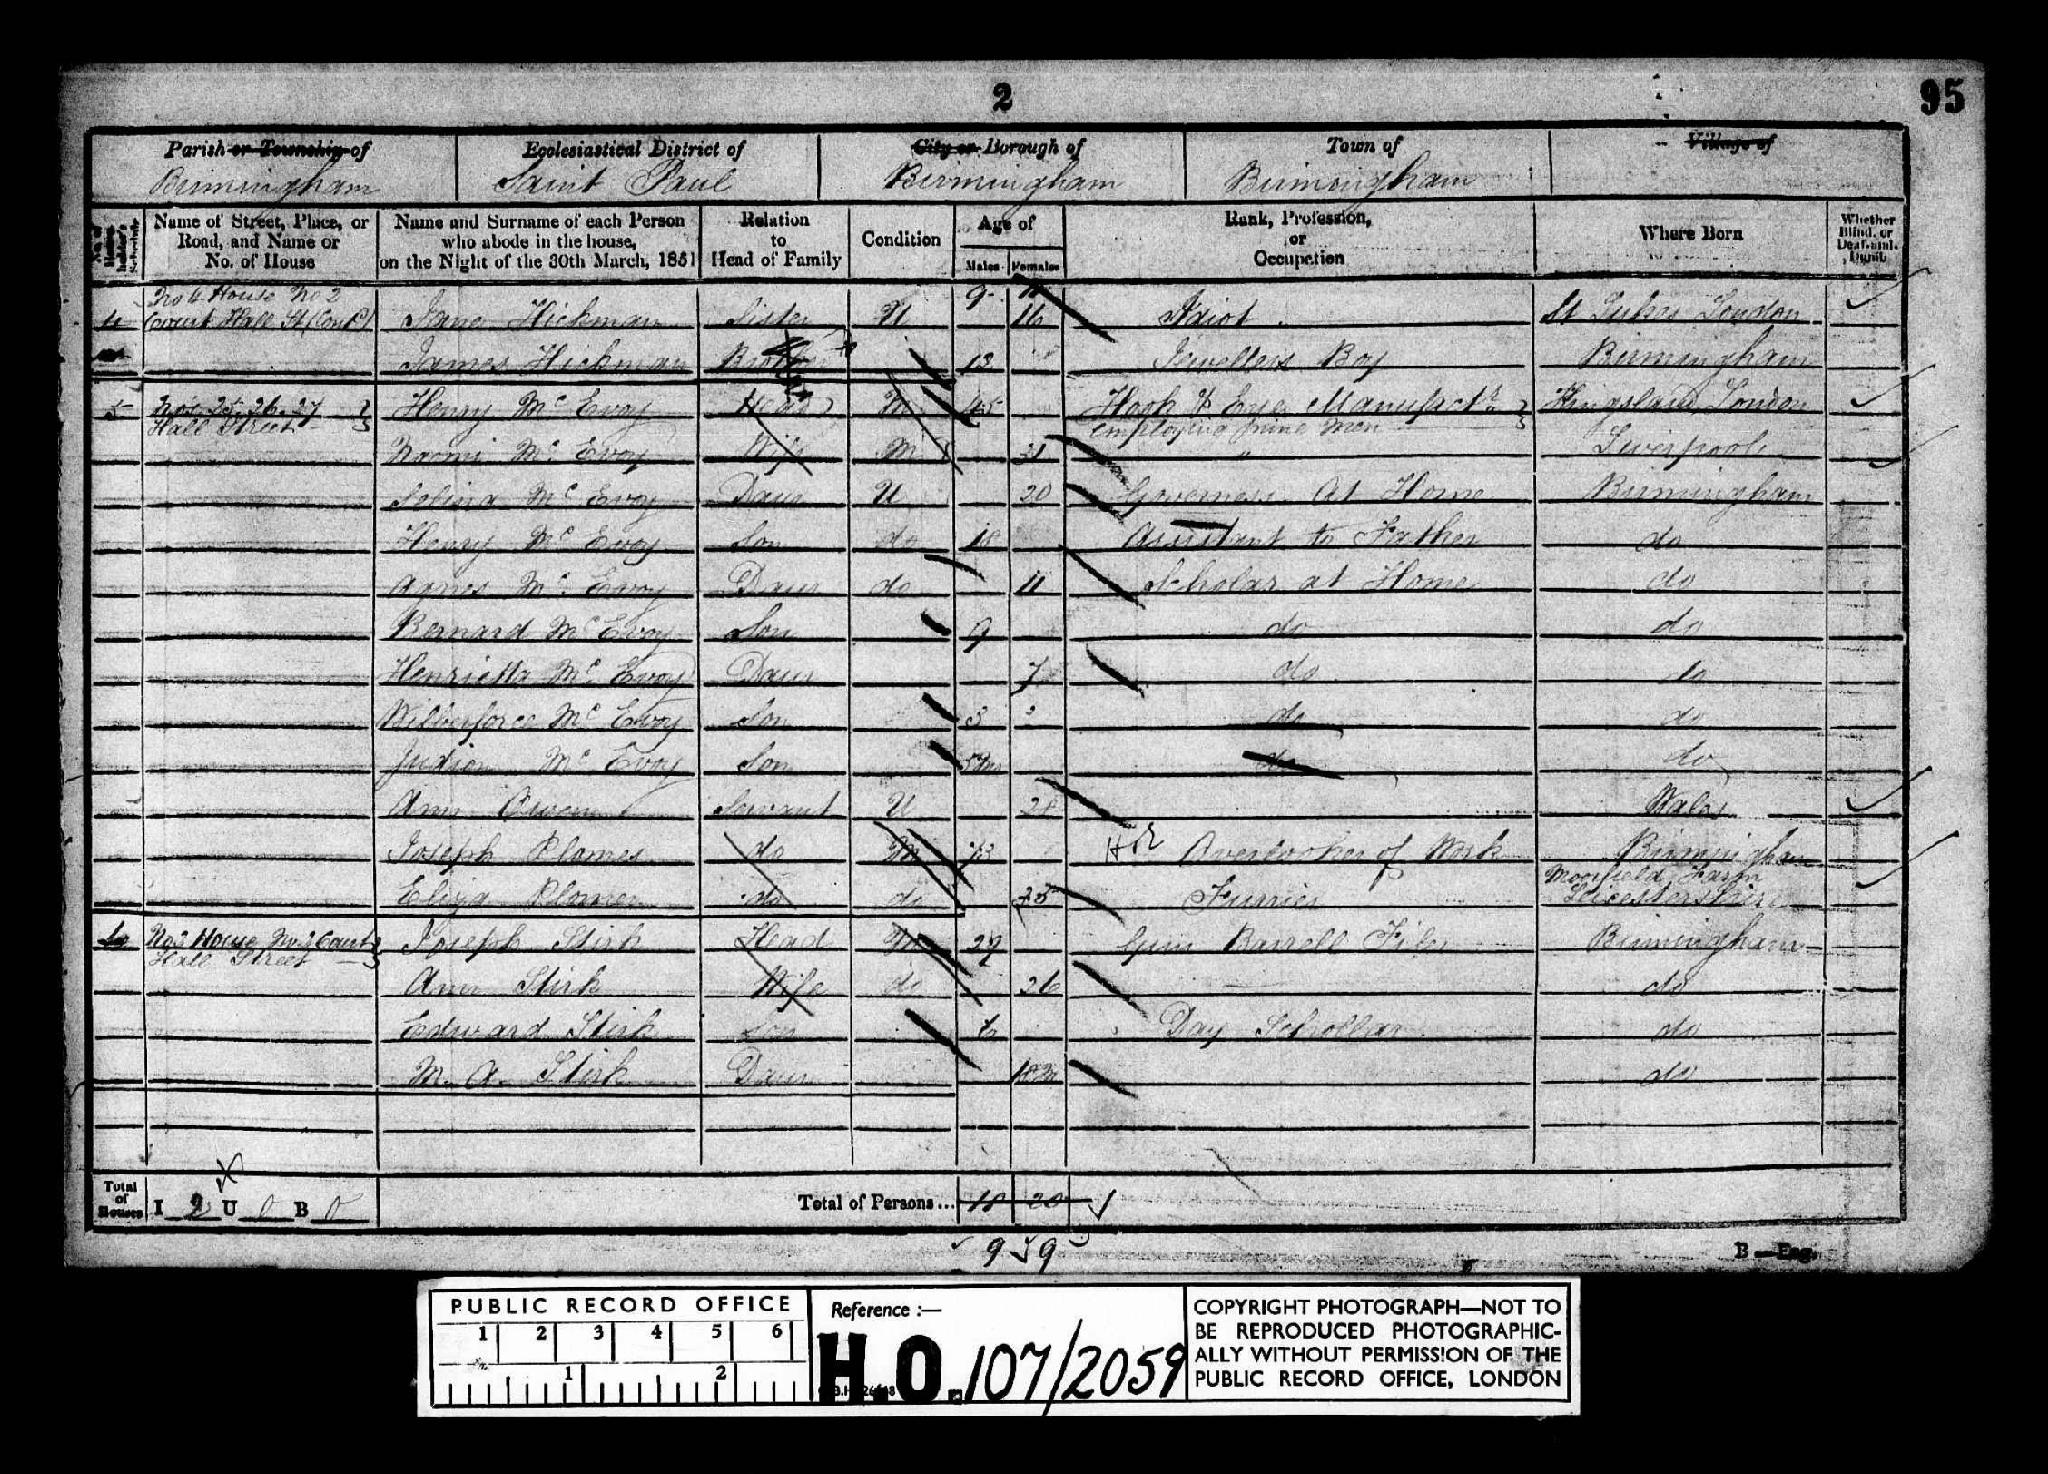 2
95
Parish or Township of
Birmingham
Ecclesiastical District of
Saint Paul
City or Borough of
Birmingham
Town of
Birmingham
Village of
No. of Householder's Schedule
Name of Street, Place, or Road, and Name or No. of House
Name and Surname of each Person who abode in the house, on the Night of the 30th March, 1851
Relation to Head of Family
Condition
Age of
Males
Females
Rank, Profession, or Occupation
Where Born
Whether Blind, or Deaf-and-Dumb
4 No 4 House No 2 Court Hall St (Cont'd) Jane Hickman Sister U 16 Idiot London
James Hickman Brother 13 Jewellers Boy Birmingham
5 Nos 25. 26. 27 Hall Street Henry Mc Evoy Head M 45 Hook & Eye Manufactr employing nine men Kingsland London
Naomi Mc Evoy Wife M Liverpool
Selina Mc Evoy Daur U 20 Governess At Home Birmingham
Henry Mc Evoy Son do 18 Assistant to Father do
Agnes Mc Evoy Daur do 11 Scholar at Home do
Bernard Mc Evoy Son 9 do do
Henrietta Mc Evoy Daur 7 do do
Wilberforce Mc Evoy Son 3 do do
Judson Mc Evoy Son do do
Ann Owen Servant U 28 Wales
Joseph do M Overlooker of Work Birmingham
Eliza do do Leicestershire
6 No 3 House No 2 Court Hall Street Joseph Stirk Head M 27 Gun Barrell Filer Birmingham
Ann Stirk Wife do 26 do
Edward Stirk Son 6 Day Schollar do
M. A. Stirk Daur do
Total of Houses I 2 U 0 B 0
Total of Persons... 18 20
9 9
B—Eng.
PUBLIC RECORD OFFICE
1 2 3 4 5 6
1 2
Reference :—
H.O. 107/2059
COPYRIGHT PHOTOGRAPH—NOT TO
BE REPRODUCED PHOTOGRAPHIC-
ALLY WITHOUT PERMISSION OF THE
PUBLIC RECORD OFFICE, LONDON